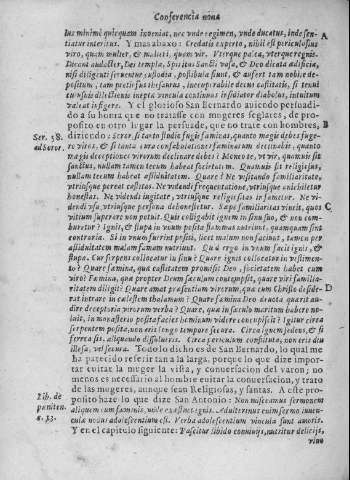 Conferencia nona
ius minimè quicquam inveniat, nec vnde regimen, vnde ducatus, inde sen- A
tiatur interitus. Y mas abaxo: Credatis experto, nihil est periculosius
viro, quàm mulier, & mulieri, quàm vir. Vterque palea, vterque ignis.
Decent audacter, Dei templa, Spiritus Sancti vasa, & Deo dicata ædificia,
nisi diligenti seruentur custodia, possibile sunt, & aufert tam nobile de-
positum, tam pretiosum thesaurum, incomparabile decus castitatis, si tenui
cuiusbis dilectionis inepta vincula continuò insidiator diabolus, intuitum
valeat infigere. Y el glorioso San Bernardo auiendo persuadi-
do a su honra que no tratasse con mugeres seglares, de pro-
posito en otro lugar la persuade, que no trate con hombres, B
Ser. 58. diziendo: Soror si tanto studio fugis fæminas, quanto magis debes fuge-
ad Soror. re viros, & si tanta cura confabulationes fæminarum declinabis, quanto
magis deceptiones virorum declinare debes? Homo te, et vir, quamuis sit
sanctus, nullam tamen tecum habeat societatem. Quamuis sit religiosus,
nullam tecum habeat assiduitatem. Quare? Ne visitando familiaritate,
vtriusque pereat castitas. Ne videndi frequentatione, vtriusque anichiletur
honestas. Ne videndi iugitate, vtriusque religiositas infametur. Ne vi-
dendi vsu, vtriusque persona dehonestetur. Sæpe familiaritas vincit, quos C
vitium superare non potuit. Quis colligabit ignem in sinu suo, & non com-
buretur? Ignis, & stupa in vnum posita flammas nutriunt, quamquam sint
contraria. Si in vnum fuerint positi, licet malum non faciunt, tamen per
assiduitatem malam famam nutriunt. Quid ergo in vnum facit ignis, &
stupa. Cur serpens collocatur in sinu? Quare ignis collocatur in vestimen-
to? Quare fæmina, quæ castitatem promisit Deo, societatem habet cum
viro? Fæmina, quæ propter Deum sæculum contempsit, quare viri familia-
ritatem diligit? Quare amat præsentiam virorum, quæ cum Christo deside- D
rat intrare in cælestem thalamum? Quare fæmina Deo deuota quærit au-
dire deceptoria virorum verba? Quare, quæ in sæculo maritum habere no-
luit, in monasterio posita facies hominum videre concupiscit? Igitur circa
serpentem posita, non eris longo tempore secura. Circa ignem sedens, & si
ferrea sis, aliquando dissolueris. Circa periculum constituta, non eris diu
illesa, vel secura. Todo lo dicho es de San Bernardo, lo qual me
ha parecido referir tan a la larga, porque lo que dize impor-
tar euitar la muger la vista, y conuersacion del varon; no
menos es necessario al hombre euitar la conuersacion, y trato
de las mugeres, aunque sean Religiosas, y santas. A este pro-
Lib. de posito haze lo que dize San Antonio: Non misceamus sermonem
pœniten. aliquem cum fæminis, nolite excitare ignis. Adulterinus enim sermo iuuen-
c. 13. cula nouus adolescentium est. Verba adolescentium vincula sunt amoris.
Y en el capitulo siguiente: Pascitur libido conuiuijs, nutritur delicijs,
vino